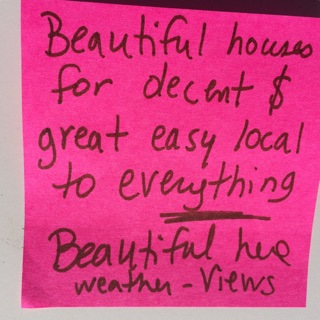 Beautiful houses
for decent $
great easy local
to everything
Beautiful here
weather - Views